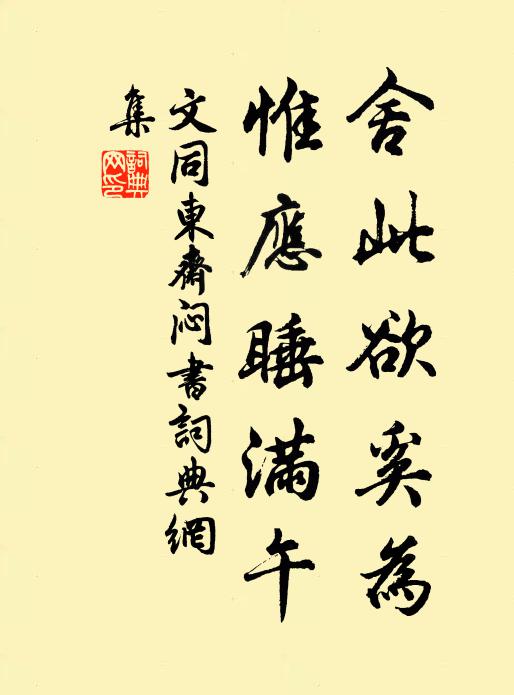 舍此欲奚為
惟應睡滿午
文同東齋闷書詞典網
集
詞典网印